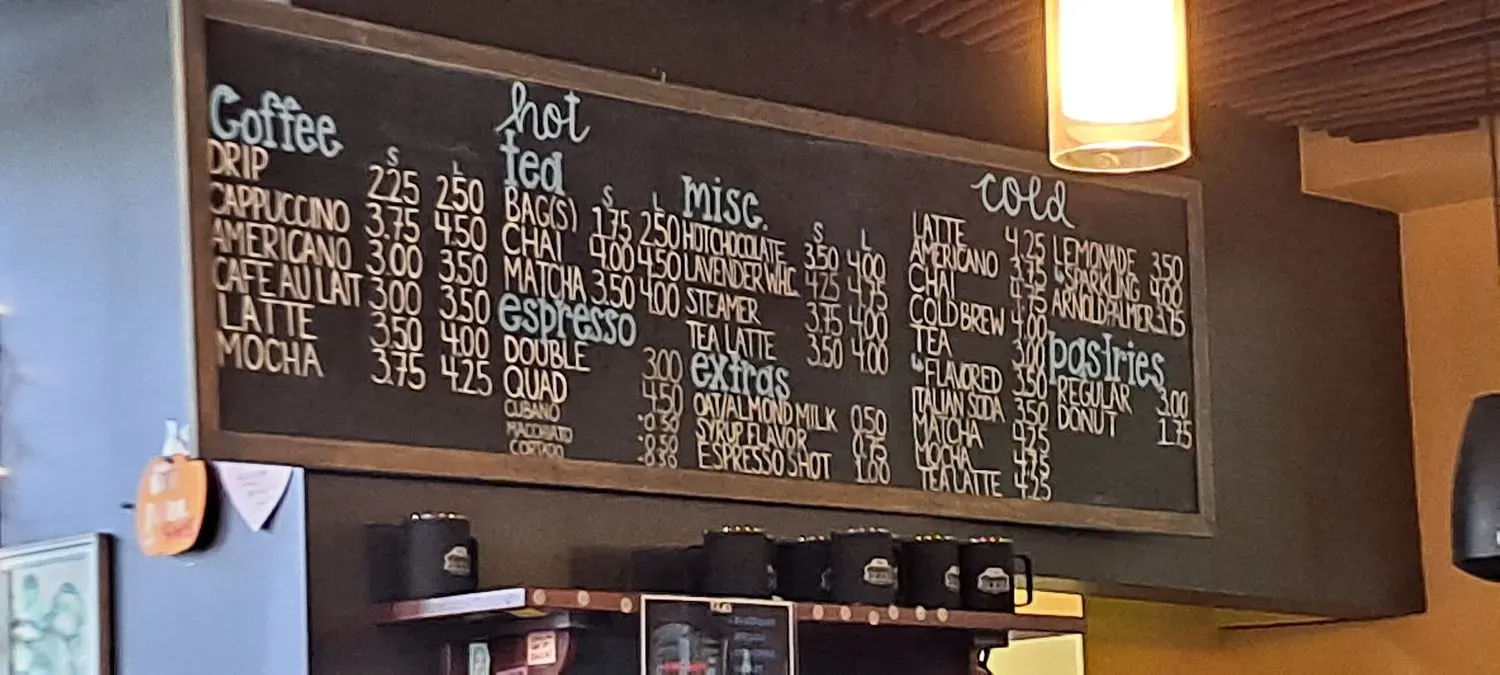 Coffee
S L
DRIP 2.25 2.50
CAPPUCCINO 3.75 4.50
AMERICANO 3.00 3.50
CAFE AU LAIT 3.00 3.50
LATTE 3.50 4.00
MOCHA 3.75 4.25
hot
tea
S L
BAG(S) 1.75 2.50
CHAI 4.00 4.50
MATCHA 3.50 4.00
espresso
DOUBLE 3.00
QUAD 4.50
CUBANO +0.50
MACCHIATO +0.50
CORTADO +0.50
misc.
S L
HOT CHOCOLATE 3.50 4.00
LAVENDER WHC 4.25 4.75
STEAMER 3.75 4.00
TEA LATTE 3.50 4.00
extras
OAT/ALMOND MILK 0.50
SYRUP FLAVOR 0.75
ESPRESSO SHOT 1.00
cold
LATTE 4.25
AMERICANO 3.75
CHAI 4.75
COLD BREW 4.00
TEA 3.00
↳FLAVORED 3.50
ITALIAN SODA 3.50
MATCHA 4.25
MOCHA 4.75
TEA LATTE 4.25
LEMONADE 3.50
↳SPARKLING 4.00
ARNOLD PALMER 3.75
pastries
REGULAR 3.00
DONUT 1.75